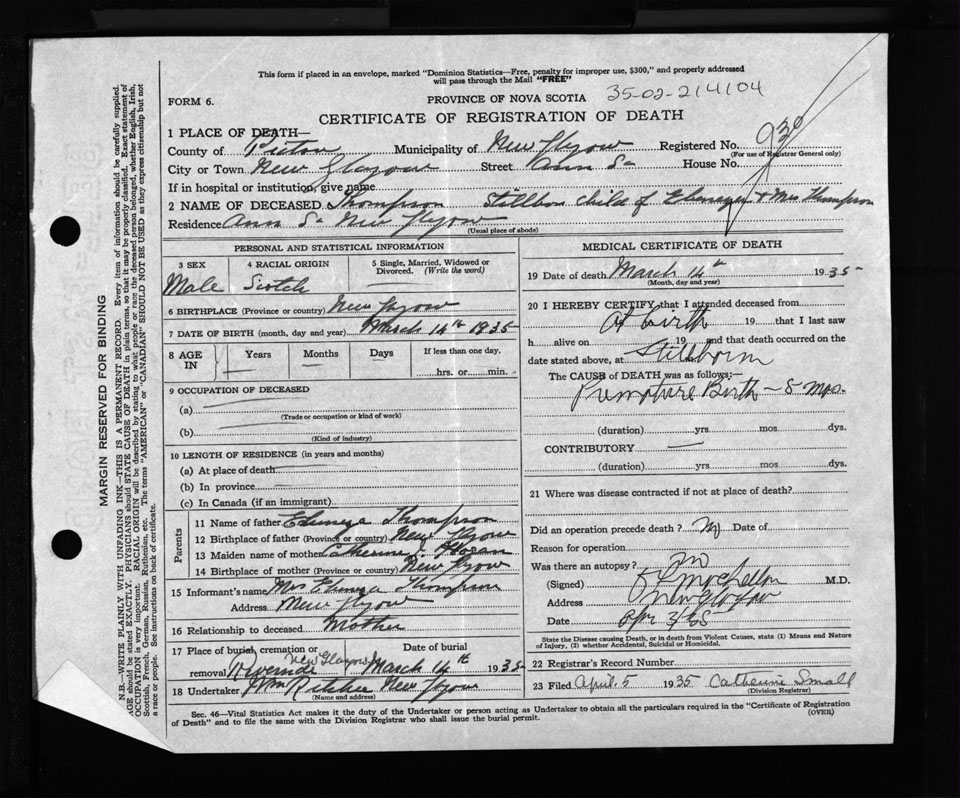 This form if placed in an envelope, marked "Dominion Statistics—Free, penalty for improper use, $300," and properly addressed
will pass through the Mail "FREE"
FORM 6.
PROVINCE OF NOVA SCOTIA
35-02-214104
CERTIFICATE OF REGISTRATION OF DEATH
930
1 PLACE OF DEATH—
County of Pictou Municipality of New Glgow Registered No.
(For use of Registrar General only)
City or Town New Glasgow Street Ann St House No.
If in hospital or institution, give name
2 NAME OF DECEASED Thompson Stillborn child of Ebenezer & Mrs Thompson
Residence Ann St New Glgow
(Usual place of abode)
PERSONAL AND STATISTICAL INFORMATION
3 SEX 4 RACIAL ORIGIN 5 Single, Married, Widowed or Divorced. (Write the word)
Male Scotch
6 BIRTHPLACE (Province or country) New Glgow
7 DATE OF BIRTH (month, day and year) March 14th 1935
8 AGE IN Years Months Days If less than one day,
hrs. or min.
9 OCCUPATION OF DECEASED
(a)
(Trade or occupation or kind of work)
(b)
(Kind of industry)
10 LENGTH OF RESIDENCE (in years and months)
(a) At place of death
(b) In province
(c) In Canada (if an immigrant)
Parents
11 Name of father Thompson
12 Birthplace of father (Province or country) New Glgow
13 Maiden name of mother Catherine
14 Birthplace of mother (Province or country) New Glgow
15 Informant's name Mrs Thompson
Address New Glgow
16 Relationship to deceased Mother
17 Place of burial, cremation or Date of burial
New Glasgow
removal Riverside March 14th 1935
18 Undertaker Wm Ritchie New Glgow
(Name and address)
MEDICAL CERTIFICATE OF DEATH
19 Date of death March 14th 1935
(Month, day and year)
20 I HEREBY CERTIFY that I attended deceased from
At birth 19 that I last saw
h alive on 19 and that death occurred on the
date stated above, at Stillborn
The CAUSE of DEATH was as follows:—
Premature Birth – 8 Mos.
(duration) yrs mos dys.
CONTRIBUTORY
(duration) yrs. mos. dys.
21 Where was disease contracted if not at place of death?
Did an operation precede death? No Date of
Reason for operation
Was there an autopsy? no
(Signed) M.D.
Address New Glasgow
Date Apr 3/35
State the Disease causing Death, or in death from Violent Causes, state (1) Means and Nature
of Injury, (2) whether Accidental, Suicidal or Homicidal.
22 Registrar's Record Number
23 Filed April 5 1935 Catherine Small
(Division Registrar)
Sec. 46—Vital Statistics Act makes it the duty of the Undertaker or person acting as Undertaker to obtain all the particulars required in the "Certificate of Registration
of Death" and to file the same with the Division Registrar who shall issue the burial permit.
(OVER)
MARGIN RESERVED FOR BINDING
N.B.—WRITE PLAINLY WITH UNFADING INK—THIS IS A PERMANENT RECORD. Every item of information should be carefully supplied.
AGE should be stated EXACTLY. PHYSICIANS should STATE CAUSE OF DEATH in plain terms, so that it may be properly classified. Exact statement of
OCCUPATION is very important. RACIAL ORIGIN will be described by stating to what people or race the deceased person belonged, whether English, Irish,
Scottish, French, German, Russian, Ruthenian, etc. The terms "AMERICAN" or "CANADIAN" SHOULD NOT BE USED as they express citizenship but not
a race or people. See instructions on back of certificate.